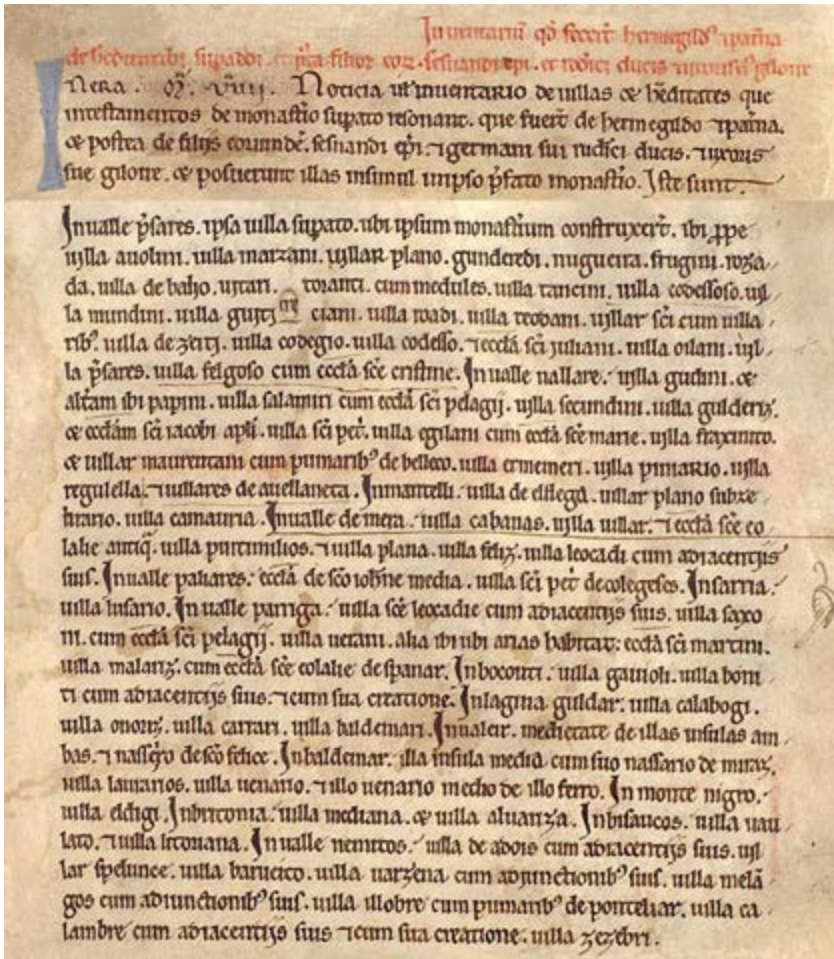 Inuentariū q̄ fecer̄t hermegild᷒ ⁊ pat̄na
de heditatib᷒ supaddi. et p̄ra filior̄ eor̄. sesnandi ep̄i. et rod̄ici ducis ⁊ uxoris̄ gilone
In era. . Noticia ul̄ inuentario de uillas ⁊ hēditates que
in testamentos de monast̄io supato resonant. que fuer̄t de hermegildo ⁊ pat̄na.
⁊ postea de filijs eorundē. sesnandi ep̄i. ⁊ germani sui rud̄ici ducis. ⁊ uxoris
sue gilone. ⁊ posuerunt illas insimul in ipso p̄fato monast̄io. Iste sunt.
In ualle p̄sares. ipsa uilla supato. ubi ipsum monast̄ium construxer̄t. ibi ꝓpe
uilla auolini. uilla marzani. uillar plano. gunderedi. nugueira. frugini. roza
da. uilla de baho. uitari. toianti. cum medules. uilla tancini. uilla codessoso. uil
la mundini. uilla ciani. uilla roadi. uilla teodani. uillar sc̄i cum uilla
rib᷒. uilla de zeiti. uilla codegio. uilla codesso. ⁊ eccl̄a sc̄i iuliani. uilla oilani. uil
la p̄sares. uilla felgoso cum eccl̄a sc̄e cristine. In ualle nallare. uilla gudini. ⁊
alt̄am ibi papini. uilla salamiri cum eccl̄a sc̄i pelagij. uilla secundini. uilla gulderiz.
⁊ eccl̄am sc̄i iacobi apl̄i. uilla sc̄i pet̄. uilla egilani cum eccl̄a sc̄e marie. uilla fraxineto.
⁊ uillar maurentani cum pumarib᷒ de belleco. uilla ermemeri. uilla piniario. uilla
regulella. ⁊ uillares de auellaneta. In mantelli. uilla de elllega. uillar plano subre
brario. uilla camauria. In ualle de mera. uilla cabanas. uilla uillar. ⁊ eccl̄a sc̄e eo
lalie antiq̄. uilla purtimilios. ⁊ uilla plana. uilla feliz. uilla leocadi cum adiacentijs
suis. In ualle paliares. eccl̄a de sc̄o ioh̄ne media. uilla sc̄i pet̄ de colegeses. In sarria.
uilla lusario. In ualle parriga. uilla sc̄e leocadie cum adiacentijs suis. uilla saxo
ni. cum eccl̄a sc̄i pelagij. uilla uerani. alia ibi ubi arias habitat. eccl̄a sc̄i martini.
uilla malariz. cum eccl̄a sc̄e eolalie de spanar. In boconti. uilla gauioli. uilla boni
ti cum adiacentijs suis. ⁊ cum sua creatione. In lagina guldar. uilla calabogi.
uilla onoriz. uilla carrari. uilla baldemari. In aleir. medietate de illas insulas am
bas. ⁊ nassero de sc̄o felice. In baldemar. illa insula media cum suo nassario de miraz.
uilla laurarios. uilla uenario. ⁊ illo uenario mecho de illo ferro. In monte nigro.
uilla eldigi. In britonia. uilla mediana. ⁊ uilla aluariza. In bisaucos. uilla uau
lato. ⁊ uilla litoriana. In ualle nemitos. uilla de adois cum adiacentijs suis. uil
lar spelunce. uilla barueito. uilla uarzena cum adiunctionib᷒ suis. uilla melā
gos cum adiunctionib᷒ suis. uilla illobre cum pumarib᷒ de ponteliar. uilla ca
lambre cum adiacentijs suis ⁊ cum sua creatione. uilla zezebri.